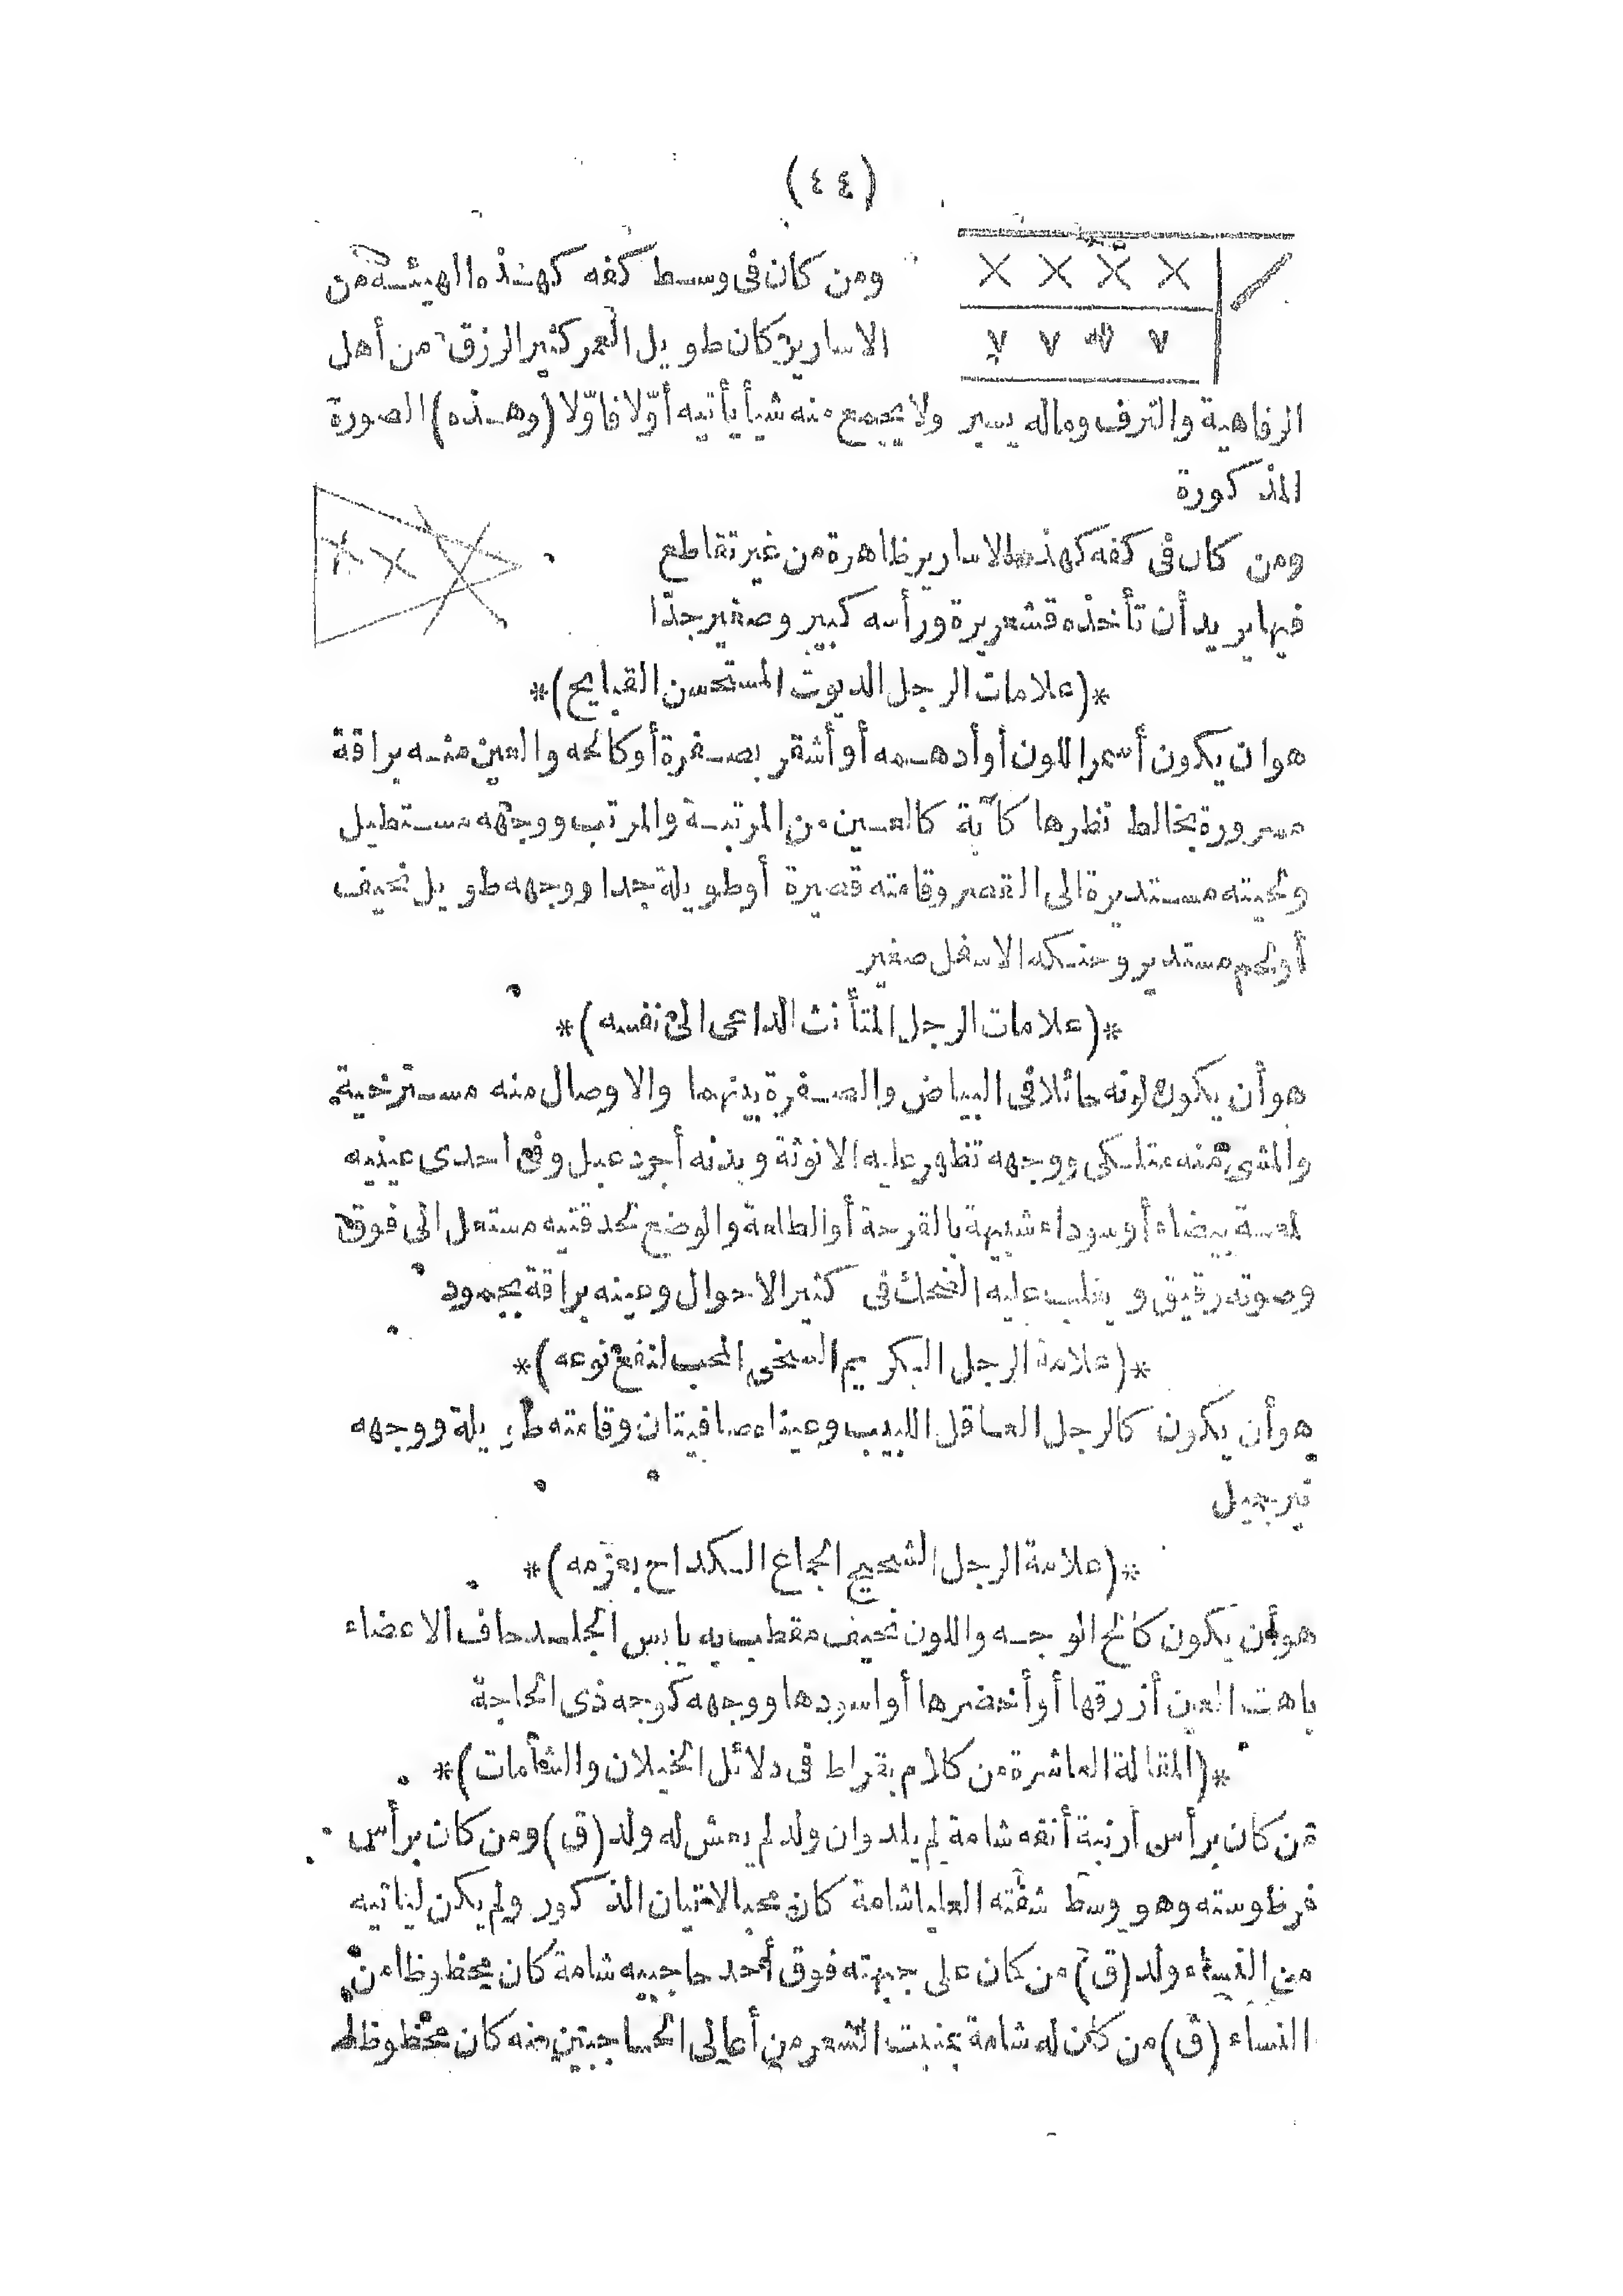 (٤٤)
ومن كان فى وسط كفه كهذه الهيئة من
الاسارير كان طويل العمر كثير الرزق من أهل
الرفاهية والترف وماله يسير ولا يجمع منه شيأ يأتيه أوّلا فاوّلا (وهذه) الصورة
المذكورة
ومن كان فى كفه كهذه الاسارير ظاهرة من غير تقاطع
فيها يريد أن تأخذه قشعريرة ورأسه كبير وصغير جدّا
*(علامات الرجل الديوث المستحسن القبايح)*
هو ان يكون أسمر اللون أو أدهمه أو أشقر بصفرة أو كالحه والعين منه براقة
مسرورة يخالط نظرها كآبة كالعين من المرتبة والمرتب ووجهه مستطيل
ولحيته مستديرة الى القصر وقامته قصيرة أو طويلة جدا ووجهه طويل نحيف
أو لحم مستدير وحنكه الاسفل صغير
*(علامات الرجل المتأنث الداعى الى نفسه)*
هو أن يكون لونه حائلا فى البياض والصفرة بينهما والاوصال منه مسترخية
والمشى منه متلكى ووجهه تظهر عليه الانوثة وبدنه أجرد عبل وفى احدى عينيه
لمسة بيضاء أو سوداء شبيهة بالقرحة أو الطلعة والوضع لحدقتيه مستعل الى فوق
وصوته رقيق ويغلب عليه الضحك فى كثير الاحوال وعينه براقة بجمود
*(علامة الرجل الكريم السخى المحب لنفع نوعه)*
هو أن يكون كالرجل العاقل اللبيب وعيناه صافيتان وقامته طويلة ووجهه
نير جميل
*(علامة الرجل الشحيح الجماع الكداح بعزمه)*
هو أن يكون كالح الوجه واللون نحيف مقطب به يابس الجلد جاف الاعضاء
باهت العين أزرقها أو أخضرها أو اسودها ووجهه كوجه ذى الحاجة
*(المقالة العاشرة من كلام بقراط فى دلائل الخيلان والشامات)*
من كان برأس أرنبة أنفه شامة لم يلد وان ولد لم يعش له ولد (ق) ومن كان برأس
فرظوسته وهو وسط شفته العليا شامة كان محبا لاتيان الذكور ولم يكن ليأتيه
من النساء ولد (ق) من كان على جبهته فوق أحد حاجبيه شامة كان محظوظا من
النساء (ق) من كان له شامة بمنبت الشعر من أعالى الحاجبين منه كان محظوظا